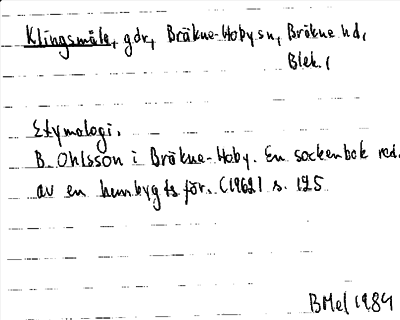 Klingsmåla, gdr, Bräkne-Hoby sn, Bräkne hd,
Blek.,
Etymologi.
B. Ohlsson i Bräkne-Hoby. En sockenbok red.
av en hembygdsför. (1962) s. 125
BMel 1984